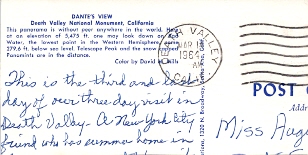 DANTE'S VIEW
Death Valley National Monument, California
This panorama is without peer anywhere in the world. Here,
at an elevation of 5,475 feet, one may look down on Bad
Water, the lowest point in the Western Hemisphere
279.6 ft. below sea level. Telescope Peak and the snow
Panamints are in the distance.
Color by David Mills
VALLEY
MAR
196
CAL
This is the third and last
day of over three day visit in
Death Valley - A New York City
friend who has summer home in
POST
Addr
Miss Aug